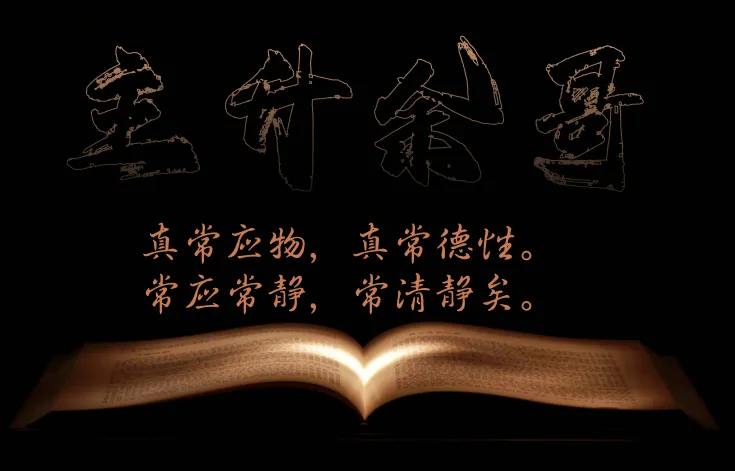 真常应物，真常德性。
常应常静，常清静矣。